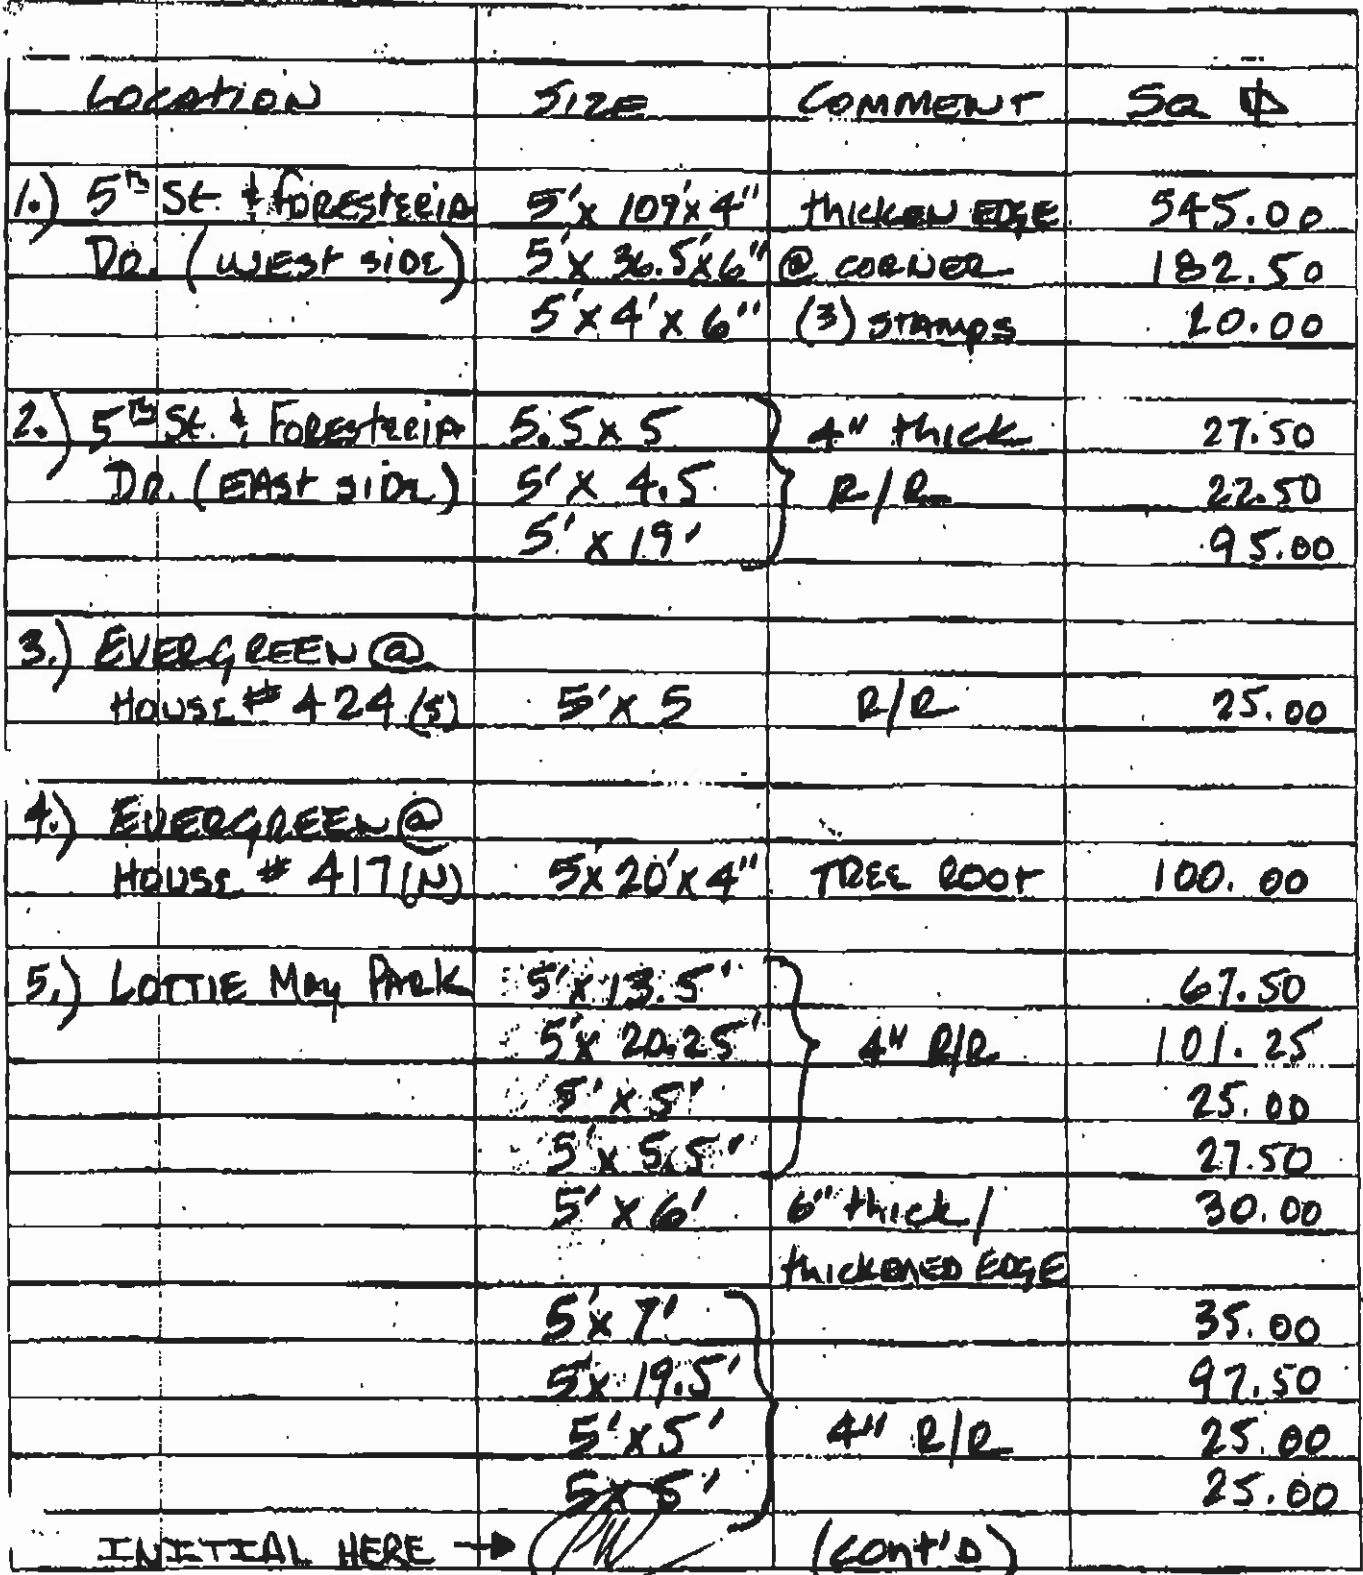 Location SIZE COMMENT SQ
1.) 5th St. & Foresteria 5'x 109'x4" thicken EDGE 545.00
DR. (west side) 5'x 36.5'x6" @ CORNER 182.50
5'x4'x6" (3) STAMPS 20.00
2.) 5th St. & Foresteria 5.5 x 5 4" thick 27.50
DR. (EAST SIDE) 5'x 4.5 R/R 22.50
5'x 19' 95.00
3.) EVERGREEN @
HOUSE # 424 (S) 5'x 5 R/R 25.00
4.) EVERGREEN @
HOUSE # 417 (N) 5x20'x4" TREE ROOT 100.00
5.) LOTTIE May PARK 5'x13.5' 67.50
5'x 20.25' 4" R/R 101.25
5'x5' 25.00
5'x 5.5' 27.50
5'x6' 6" thick/ 30.00
thickened EDGE
5'x 7' 35.00
5'x 19.5' 97.50
5'x5' 4" R/R 25.00
5x5' 25.00
INITIAL HERE → (Cont'd)